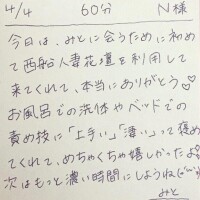 4/4 60分 N様
今日は、みとに会うために初めて
西船人妻花壇を利用して
来てくれて、本当にありがとう♡
お風呂での洗体やベッドでの
責め技に「上手い」「凄い」って褒め
てくれて、めちゃくちゃ嬉しかったよ
次はもっと濃い時間にしようね(*^^*)
みと